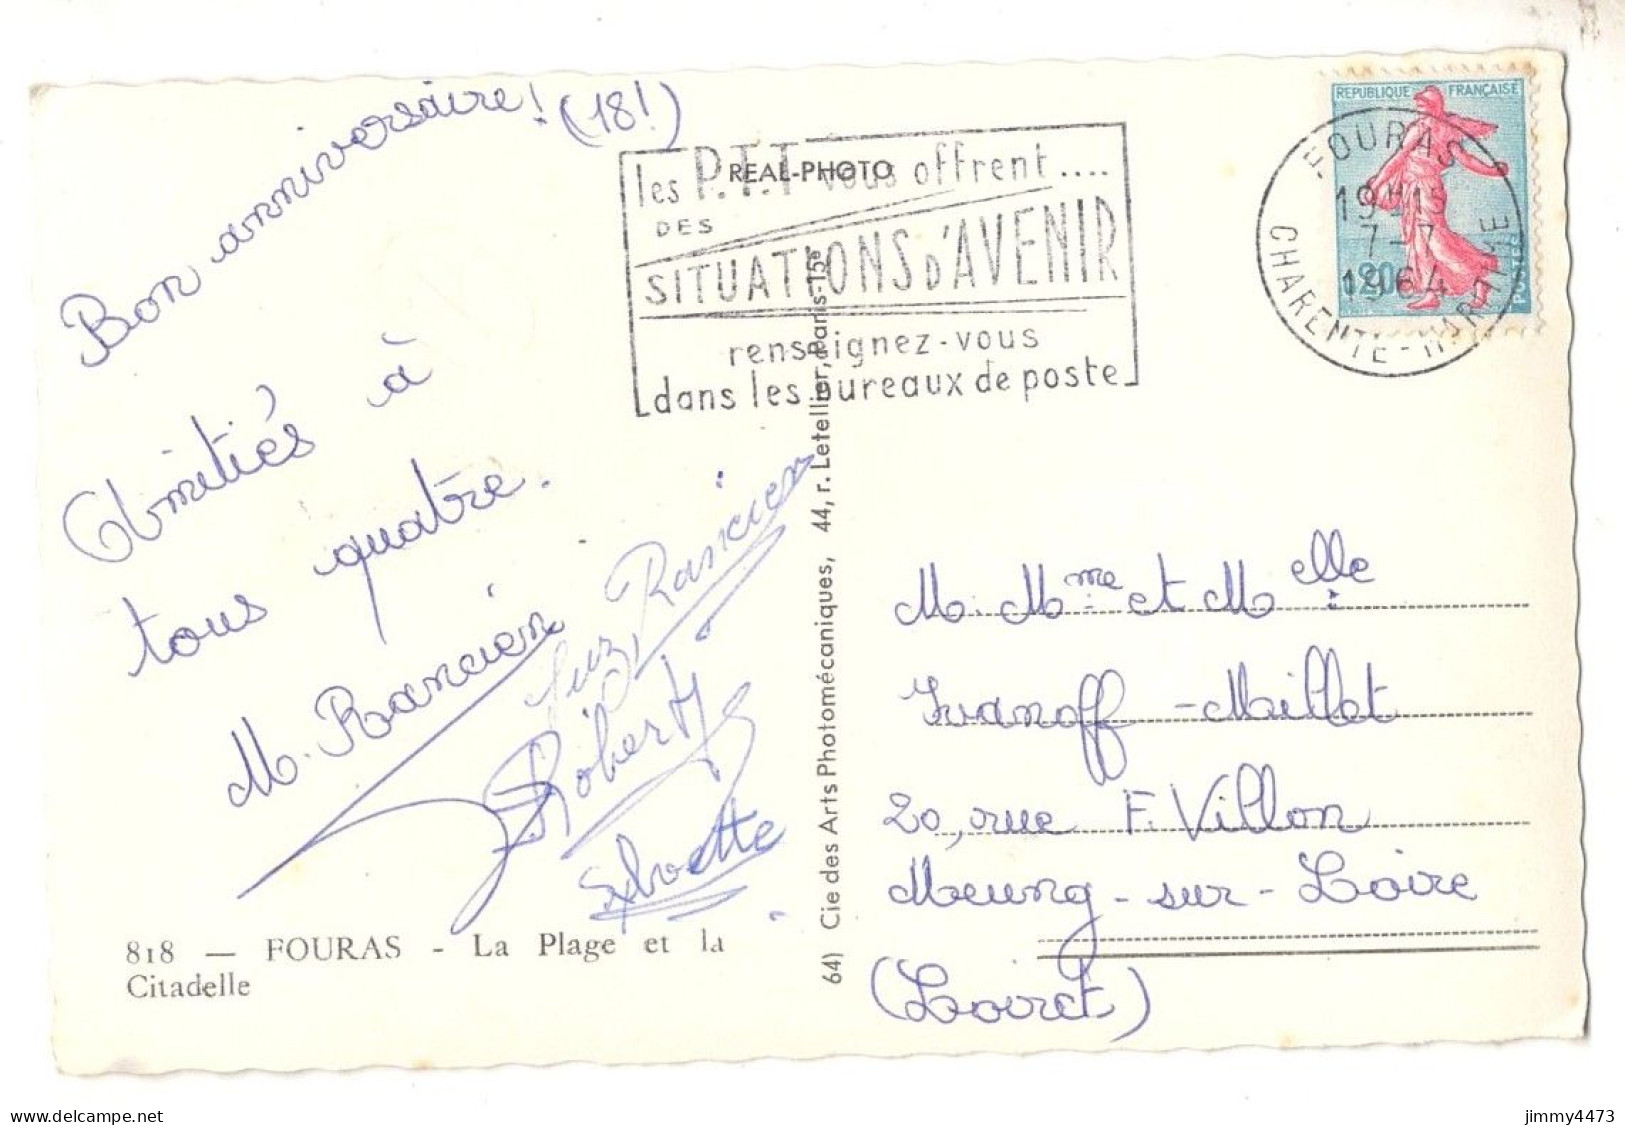 Bon anniversaire! (18!)
Amitiés à
tous quatre.
M. Rancien
Suz. Rancien
Robert
Sylvette
818 — FOURAS - La Plage et la
Citadelle
REAL-PHOTO
les P.T.T vous offrent....
DES
SITUATIONS D'AVENIR
renseignez-vous
dans les bureaux de poste
64) Cie des Arts Photomécaniques, 44, r. Letellier, Paris-15e
REPUBLIQUE FRANÇAISE
0,20
POSTES
FOURAS
19H15
7-7
1964
CHARENTE-MARITIME
M. Mme et Melle
Ivanoff-Maillet
20, rue F. Villon
Meung-sur-Loire
(Loiret)
jimmy4473
www.delcampe.net